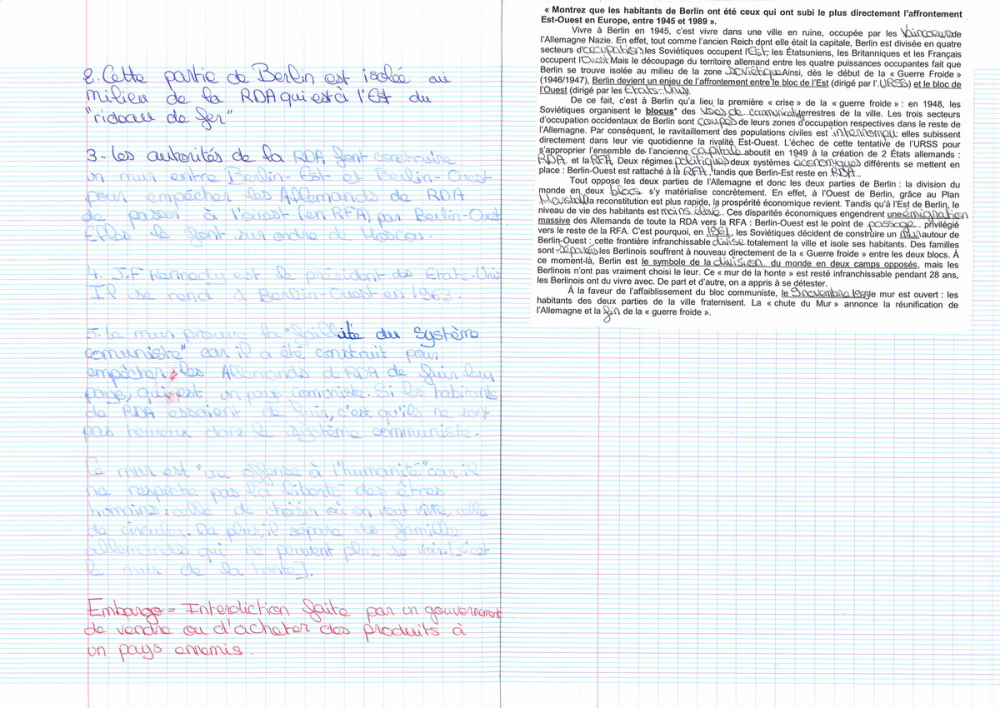 2. Cette partie de Berlin est isolée au
milieu de la RDA qui est à l'Est du
"rideau de fer"
3. Les autorités de la RDA font construire
un mur entre Berlin-Est et Berlin-Ouest
pour empêcher les Allemands de RDA
de passer à l'ouest (en RFA) par Berlin-Ouest
Elles le font sur ordre de Moscou.
4. J.F Kennedy est le président des Etats-Unis
Il se rend à Berlin-Ouest en 1963.
5. Le mur prouve la "faillite du système
communiste" car il a été construit pour
empêcher les Allemands de RDA de fuir leur
pays, qui est un pays communiste. Si les habitants
de RDA essaient de fuir, c'est qu'ils ne sont
pas heureux dans le système communiste.
Ce mur est "une offense à l'humanité" car il
ne respecte pas la liberté des êtres
humains : celle de choisir où on veut vivre, celle
de circuler. De plus, il sépare des familles
allemandes qui ne peuvent plus se voir [c'est
le mur de la honte].
Embargo = Interdiction faite par un gouvernement
de vendre ou d'acheter des produits à
un pays ennemis.
« Montrez que les habitants de Berlin ont été ceux qui ont subi le plus directement l'affrontement
Est-Ouest en Europe, entre 1945 et 1989 ».
Vivre à Berlin en 1945, c'est vivre dans une ville en ruine, occupée par les vainqueurs de
l'Allemagne Nazie. En effet, tout comme l'ancien Reich dont elle était la capitale, Berlin est divisée en quatre
secteurs d'occupation les Soviétiques occupent l'Est, les Étatsuniens, les Britanniques et les Français
occupent l'Ouest Mais le découpage du territoire allemand entre les quatre puissances occupantes fait que
Berlin se trouve isolée au milieu de la zone soviétique Ainsi, dès le début de la « Guerre Froide »
(1946/1947), Berlin devient un enjeu de l'affrontement entre le bloc de l'Est (dirigé par l'URSS) et le bloc de
l'Ouest (dirigé par les Etats-Unis).
De ce fait, c'est à Berlin qu'a lieu la première « crise » de la « guerre froide » : en 1948, les
Soviétiques organisent le blocus* des voies de communication terrestres de la ville. Les trois secteurs
d'occupation occidentaux de Berlin sont coupés de leurs zones d'occupation respectives dans le reste de
l'Allemagne. Par conséquent, le ravitaillement des populations civiles est interrompu : elles subissent
directement dans leur vie quotidienne la rivalité Est-Ouest. L'échec de cette tentative de l'URSS pour
s'approprier l'ensemble de l'ancienne capitale aboutit en 1949 à la création de 2 États allemands :
RDA et la RFA. Deux régimes politiques deux systèmes économiques différents se mettent en
place : Berlin-Ouest est rattaché à la RFA, tandis que Berlin-Est reste en RDA.
Tout oppose les deux parties de l'Allemagne et donc les deux parties de Berlin : la division du
monde en deux blocs s'y matérialise concrètement. En effet, à l'Ouest de Berlin, grâce au Plan
Marshall la reconstitution est plus rapide, la prospérité économique revient. Tandis qu'à l'Est de Berlin, le
niveau de vie des habitants est moins élevé. Ces disparités économiques engendrent une émigration
massive des Allemands de toute la RDA vers la RFA : Berlin-Ouest est le point de passage privilégié
vers le reste de la RFA. C'est pourquoi, en 1961, les Soviétiques décident de construire un mur autour de
Berlin-Ouest : cette frontière infranchissable divise totalement la ville et isole ses habitants. Des familles
sont séparées les Berlinois souffrent à nouveau directement de la « Guerre froide » entre les deux blocs. À
ce moment-là, Berlin est le symbole de la division du monde en deux camps opposés, mais les
Berlinois n'ont pas vraiment choisi le leur. Ce « mur de la honte » est resté infranchissable pendant 28 ans,
les Berlinois ont du vivre avec. De part et d'autre, on a appris à se détester.
À la faveur de l'affaiblissement du bloc communiste, le 9 novembre 1989 le mur est ouvert : les
habitants des deux parties de la ville fraternisent. La « chute du Mur » annonce la réunification de
l'Allemagne et la fin de la « guerre froide ».